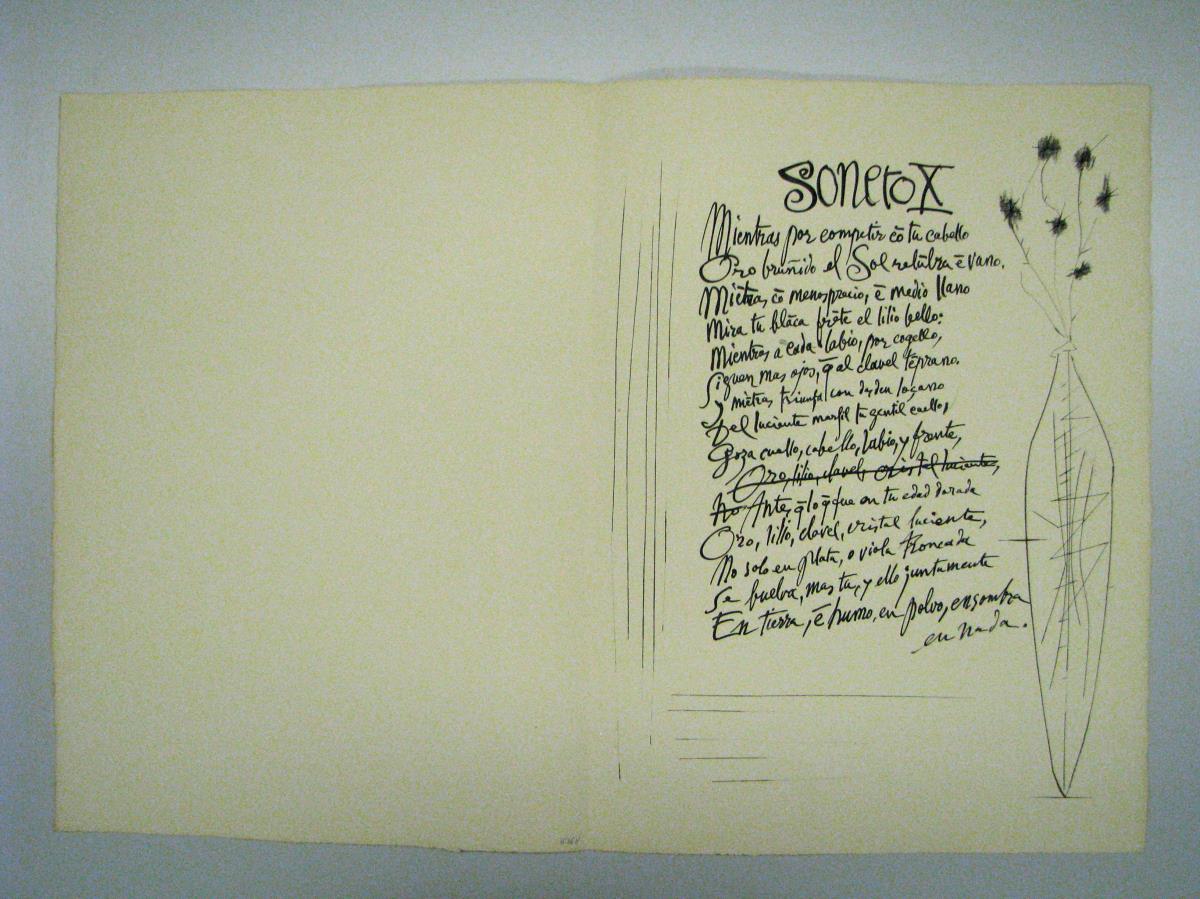 Soneto X
Mientras por competir cō tu cabello
Oro bruñido el Sol relūbra ē vano.
Miētras cō menosprecio, ē medio llano
Mira tu blāca frēte el lilio bello:
Mientras a cada labio, por cogello,
Siguen mas ojos, q̄ al clavel tēprano.
y miētras triunfa con desden loçano
Del luciente marfil tu gentil cuello,
Goza cuello, cabello, labio, y frente,
Oro, lilio, clavel, cristal luciente,
No Antes, q̄ lo q̄ fue en tu edad dorada
Oro, lilio, clavel, cristal luciente,
No solo en plata, o viola troncada
Se buelva, mas tu, y ello juntamente
En tierra, ē humo, en polvo, en sombra
en nada.